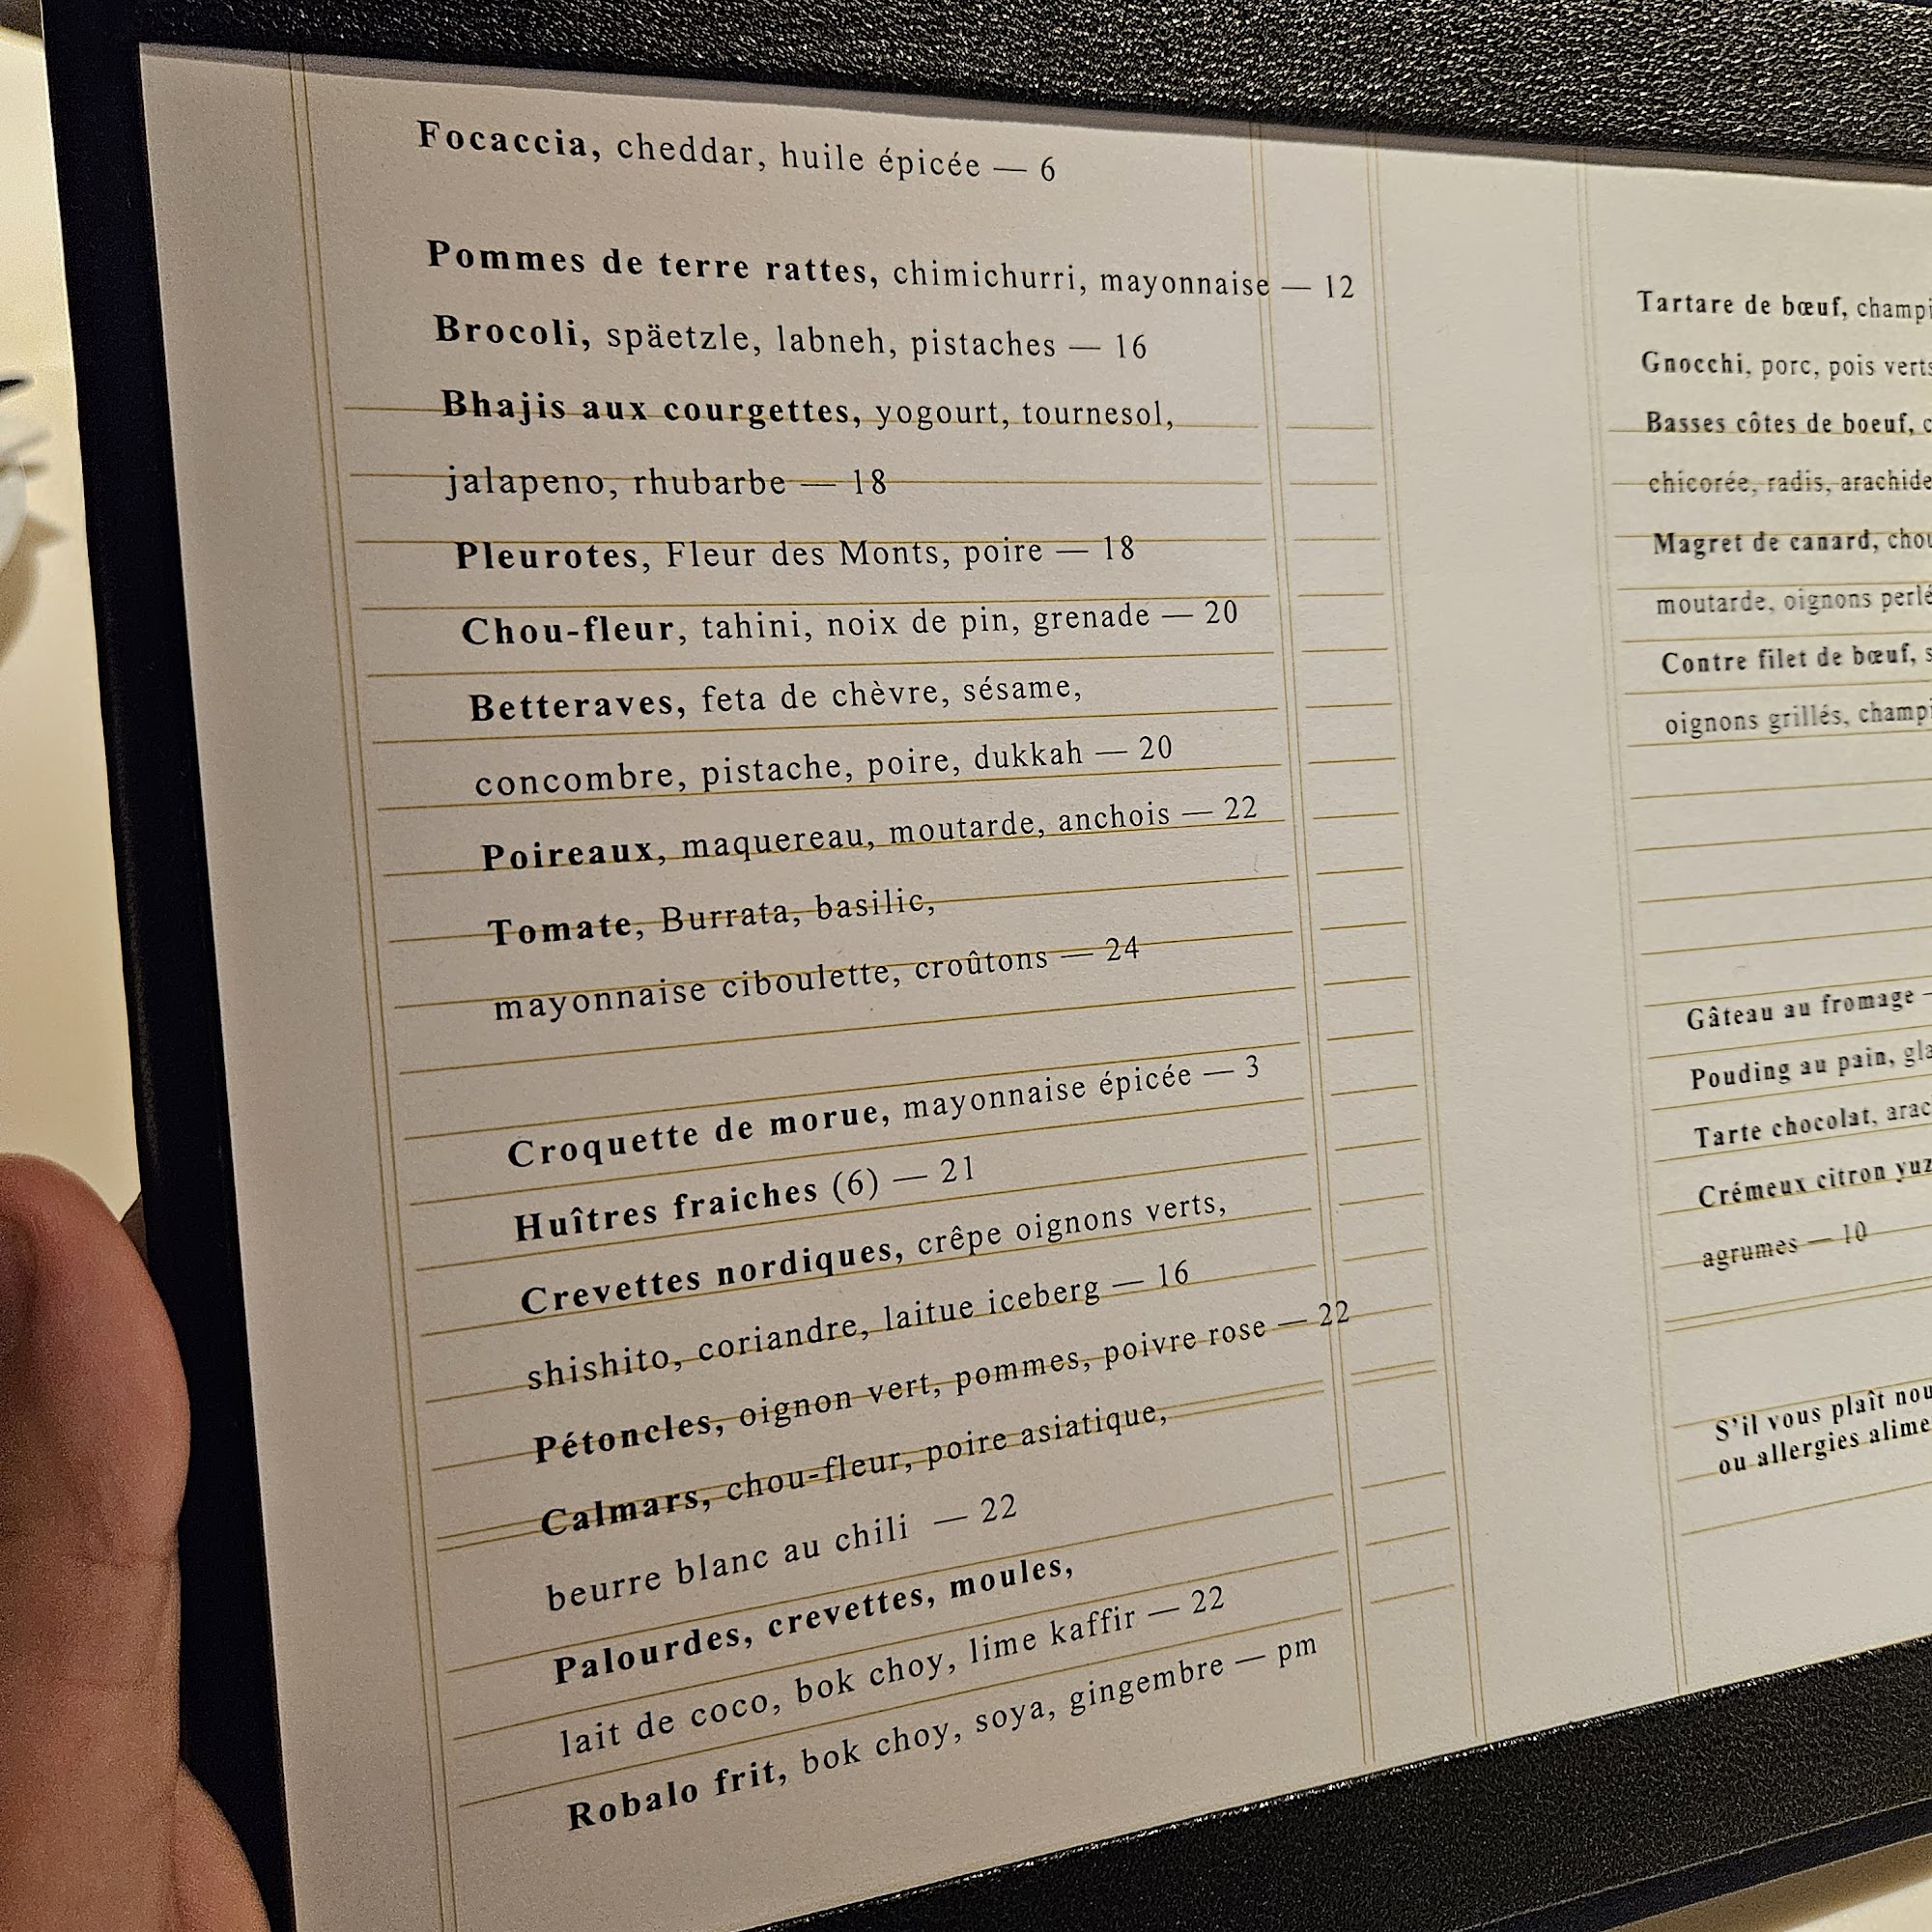 Focaccia, cheddar, huile épicée — 6
Pommes de terre rattes, chimichurri, mayonnaise — 12
Brocoli, späetzle, labneh, pistaches — 16
Bhajis aux courgettes, yogourt, tournesol,
jalapeno, rhubarbe — 18
Pleurotes, Fleur des Monts, poire — 18
Chou-fleur, tahini, noix de pin, grenade — 20
Betteraves, feta de chèvre, sésame,
concombre, pistache, poire, dukkah — 20
Poireaux, maquereau, moutarde, anchois — 22
Tomate, Burrata, basilic,
mayonnaise ciboulette, croûtons — 24
Croquette de morue, mayonnaise épicée — 3
Huîtres fraiches (6) — 21
Crevettes nordiques, crêpe oignons verts,
shishito, coriandre, laitue iceberg — 16
Pétoncles, oignon vert, pommes, poivre rose — 22
Calmars, chou-fleur, poire asiatique,
beurre blanc au chili — 22
Palourdes, crevettes, moules,
lait de coco, bok choy, lime kaffir — 22
Robalo frit, bok choy, soya, gingembre — pm
Tartare de bœuf,
Gnocchi, porc, pois verts
Basses côtes de boeuf,
chicorée, radis,
Magret de canard,
moutarde, oignons
Contre filet de bœuf,
oignons grillés,
Gâteau au fromage —
Pouding au pain,
Tarte chocolat,
Crémeux citron
agrumes — 10
S'il vous plaît
ou allergies